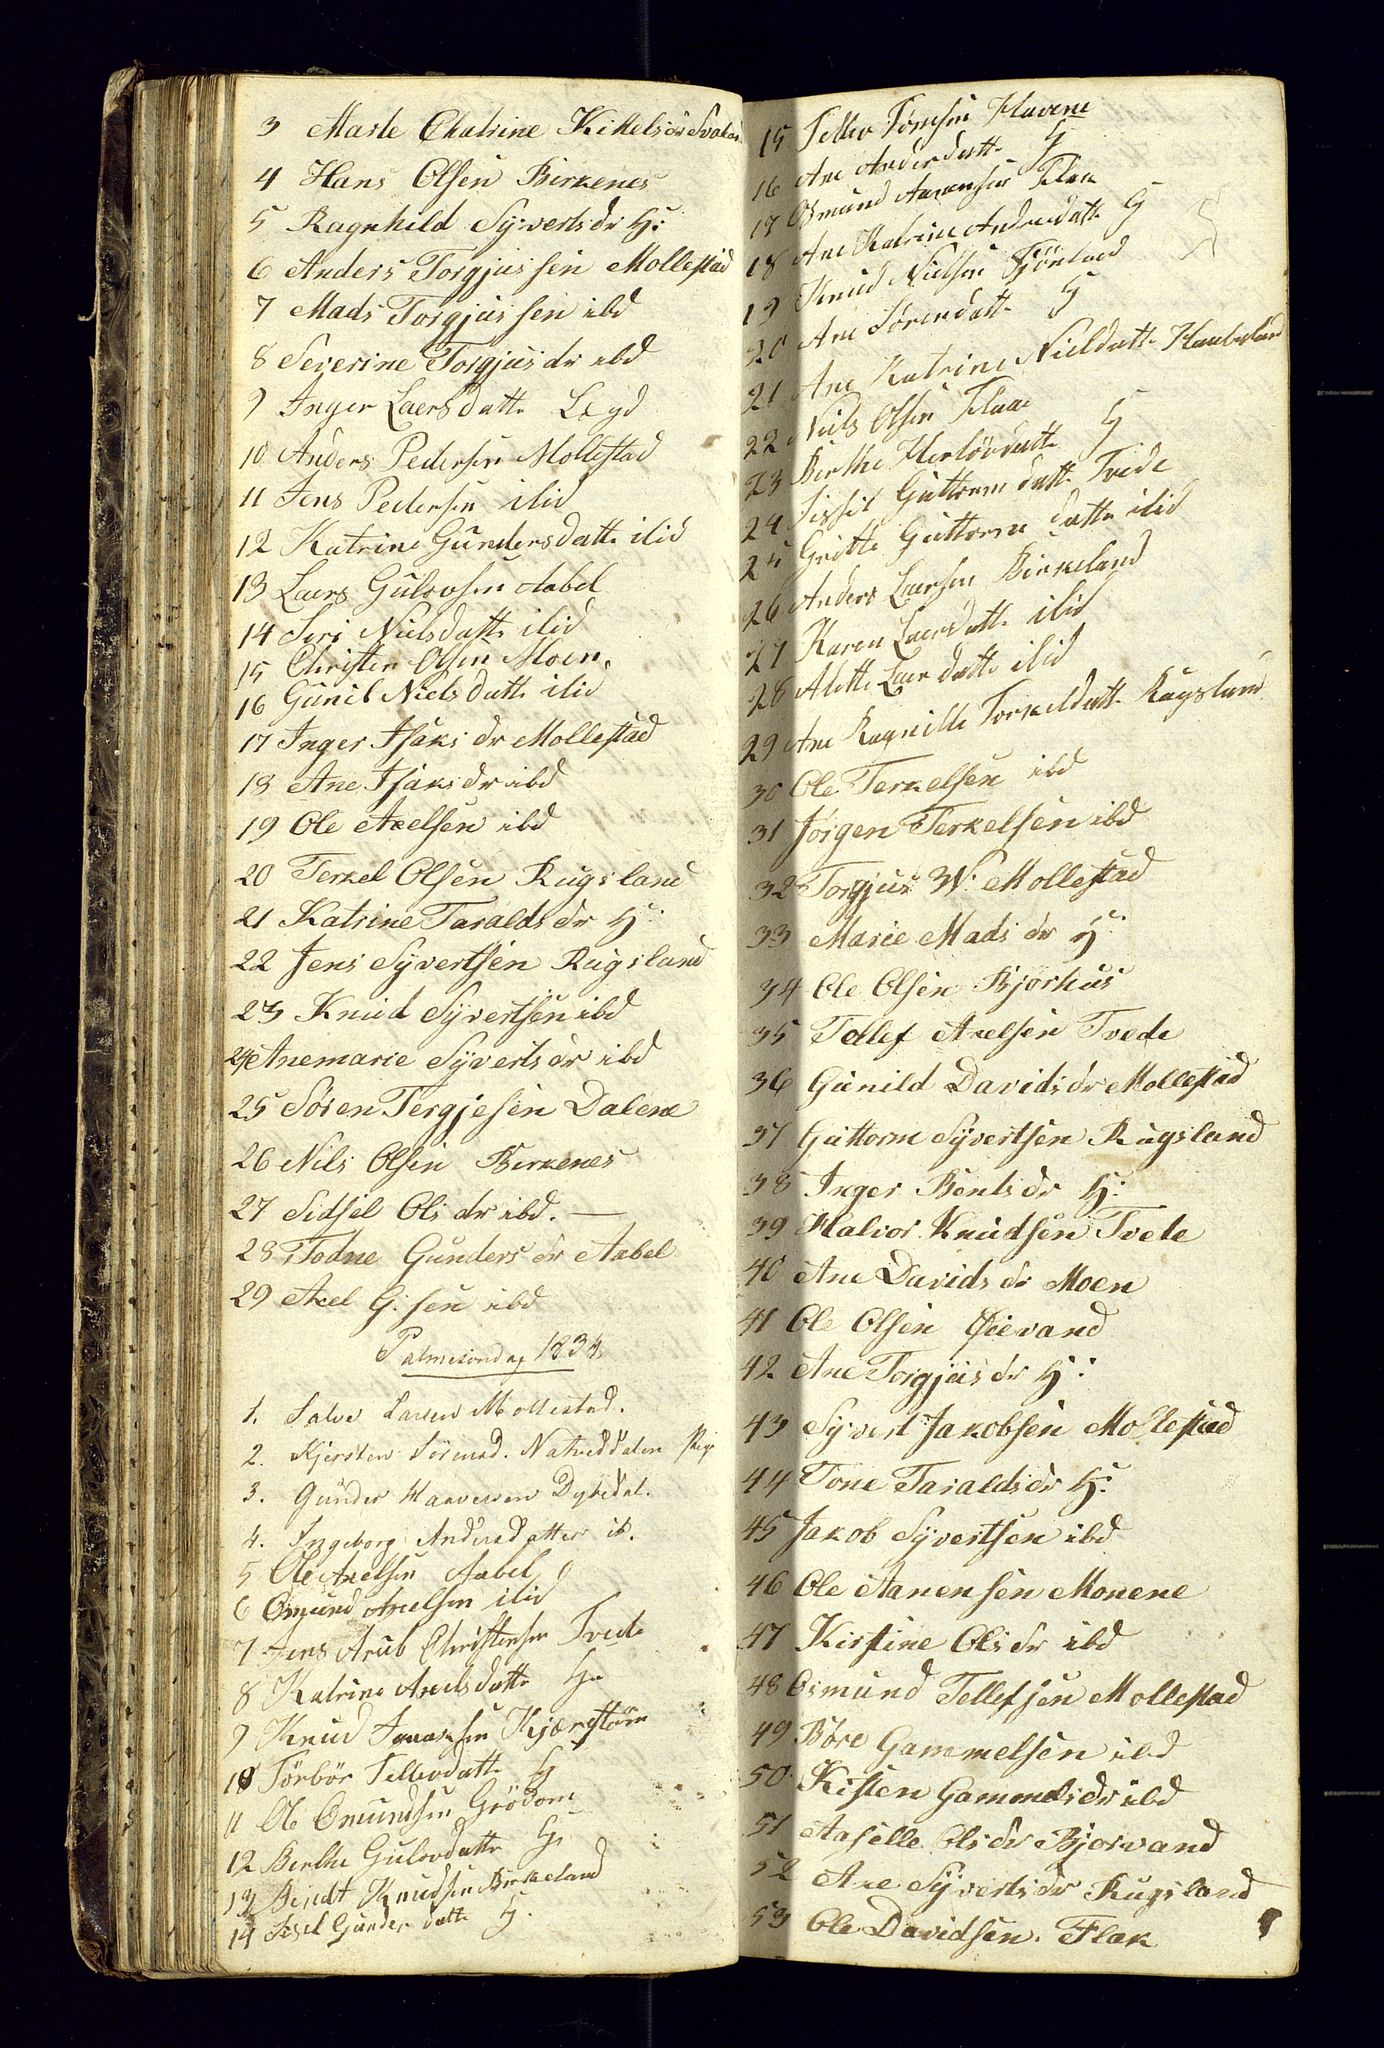 3 Marte Chatrine Kittelsdr
4 Hans Olsen Birkenes
5 Ragnhild Syvertsdr H:
6 Anders Torgjussen Mollestad
7 Mads Torgjussen ibd
8 Severine Torgjusdr ibd
9 Inger Laersdatte Legd
10 Anders Pedersen Mollestad
11 Jens Pedersen ibid
12 Katrine Gundersdatte ibid
13 Laers Gulovsen Aabel
14 Siri Nielsdatte ibid
15 Christen Olsen Moen
16 Gunil Nielsdatte ibid
17 Inger Isaksdr Mollestad
18 Ane Isaksdr ibd
19 Ole Axelsen ibd
20 Terkel Olsen Rugsland
21 Katrine Taraldsdr H:
22 Jens Syvertsen Rugsland
23 Knud Syvertsen ibd
24 Anemarie Syvertsdr ibd
25 Søren Tergjesen Dalene
26 Nils Olsen Birkenes
27 Sidsel Olsdr ibd. —
28 Todne Gundersdr Aabel
29 Axel G:sen ibd
Palmesondag 1834
1. Salve Larsen Mollestad.
2. Kjersten Sørensd. Natveddalen
3. Gunder Haaversen Dybedal.
4. Ingeborg Andersdatter ib.
5 Ole Axelsen Aabel
6 Osmund Axelsen ibid
7 Jens Arub Christensen Tvede
8 Katrine Axelsdatte H
9 Knud Isaaksen Kjærstøen
10 Torbor Tellevdatte H
11 Ole Osmundsen Grödom
12 Berthe Gulovdatte H
13 Bendt Knudsen Birkeland
14 Sisel Gunderdatte H.
15 Tellev Tomesen Flavene
16 Ane Anderdatte H
17 Osmund Aanensen Flaa
18 Ane Katrine Andreadatte H
19 Knud Nielsen
20 Ane Sörendatte H
21 Ane Katrine Nieldatte
22 Niels Olsen Flaae
23 Berthe Herlövdatte H
24 Sissil Guttormdatte Tvede
25 Gritte Guttormdatte ibid
26 Anders Laersen Birkeland
27 Karen Laersdatte ibid
28 Alette Laersdatte ibid
29 Ane Ragnille Torkeldatte Rugsland
30 Ole Terkelsen ibd
31 Jørgen Terkelsen ibd
32 Torgjus W. Mollestad
33 Marie Madsdr H:
34 Ole Olsen Bjorhus
35 Tellef Axelsen Tvede
36 Gunild Davidsdr Mollestad
37 Guttorm Syvertsen Rugsland
38 Inger Bentsdr H:
39 Halvor Knudsen Tvete
40 Ane Davidsdr Moen
41 Ole Olsen Øievand
42. Ane Torgjusdr H:
43 Syvert Jakobsen Mollestad
44 Tone Taraldsdr H:
45 Jakob Syvertsen ibd
46 Ole Aanensen Monene
47 Kirstine Olsdr ibd
48 Osmund Tellefsen Mollestad
49 Böre Gammelsen ibd
50 Kisten Gammelsdr ibd
51 Aaselle Olsdr Bjorvand
52 Ane Syvertsdr Rugsland
53 Ole Davidsen. Flak